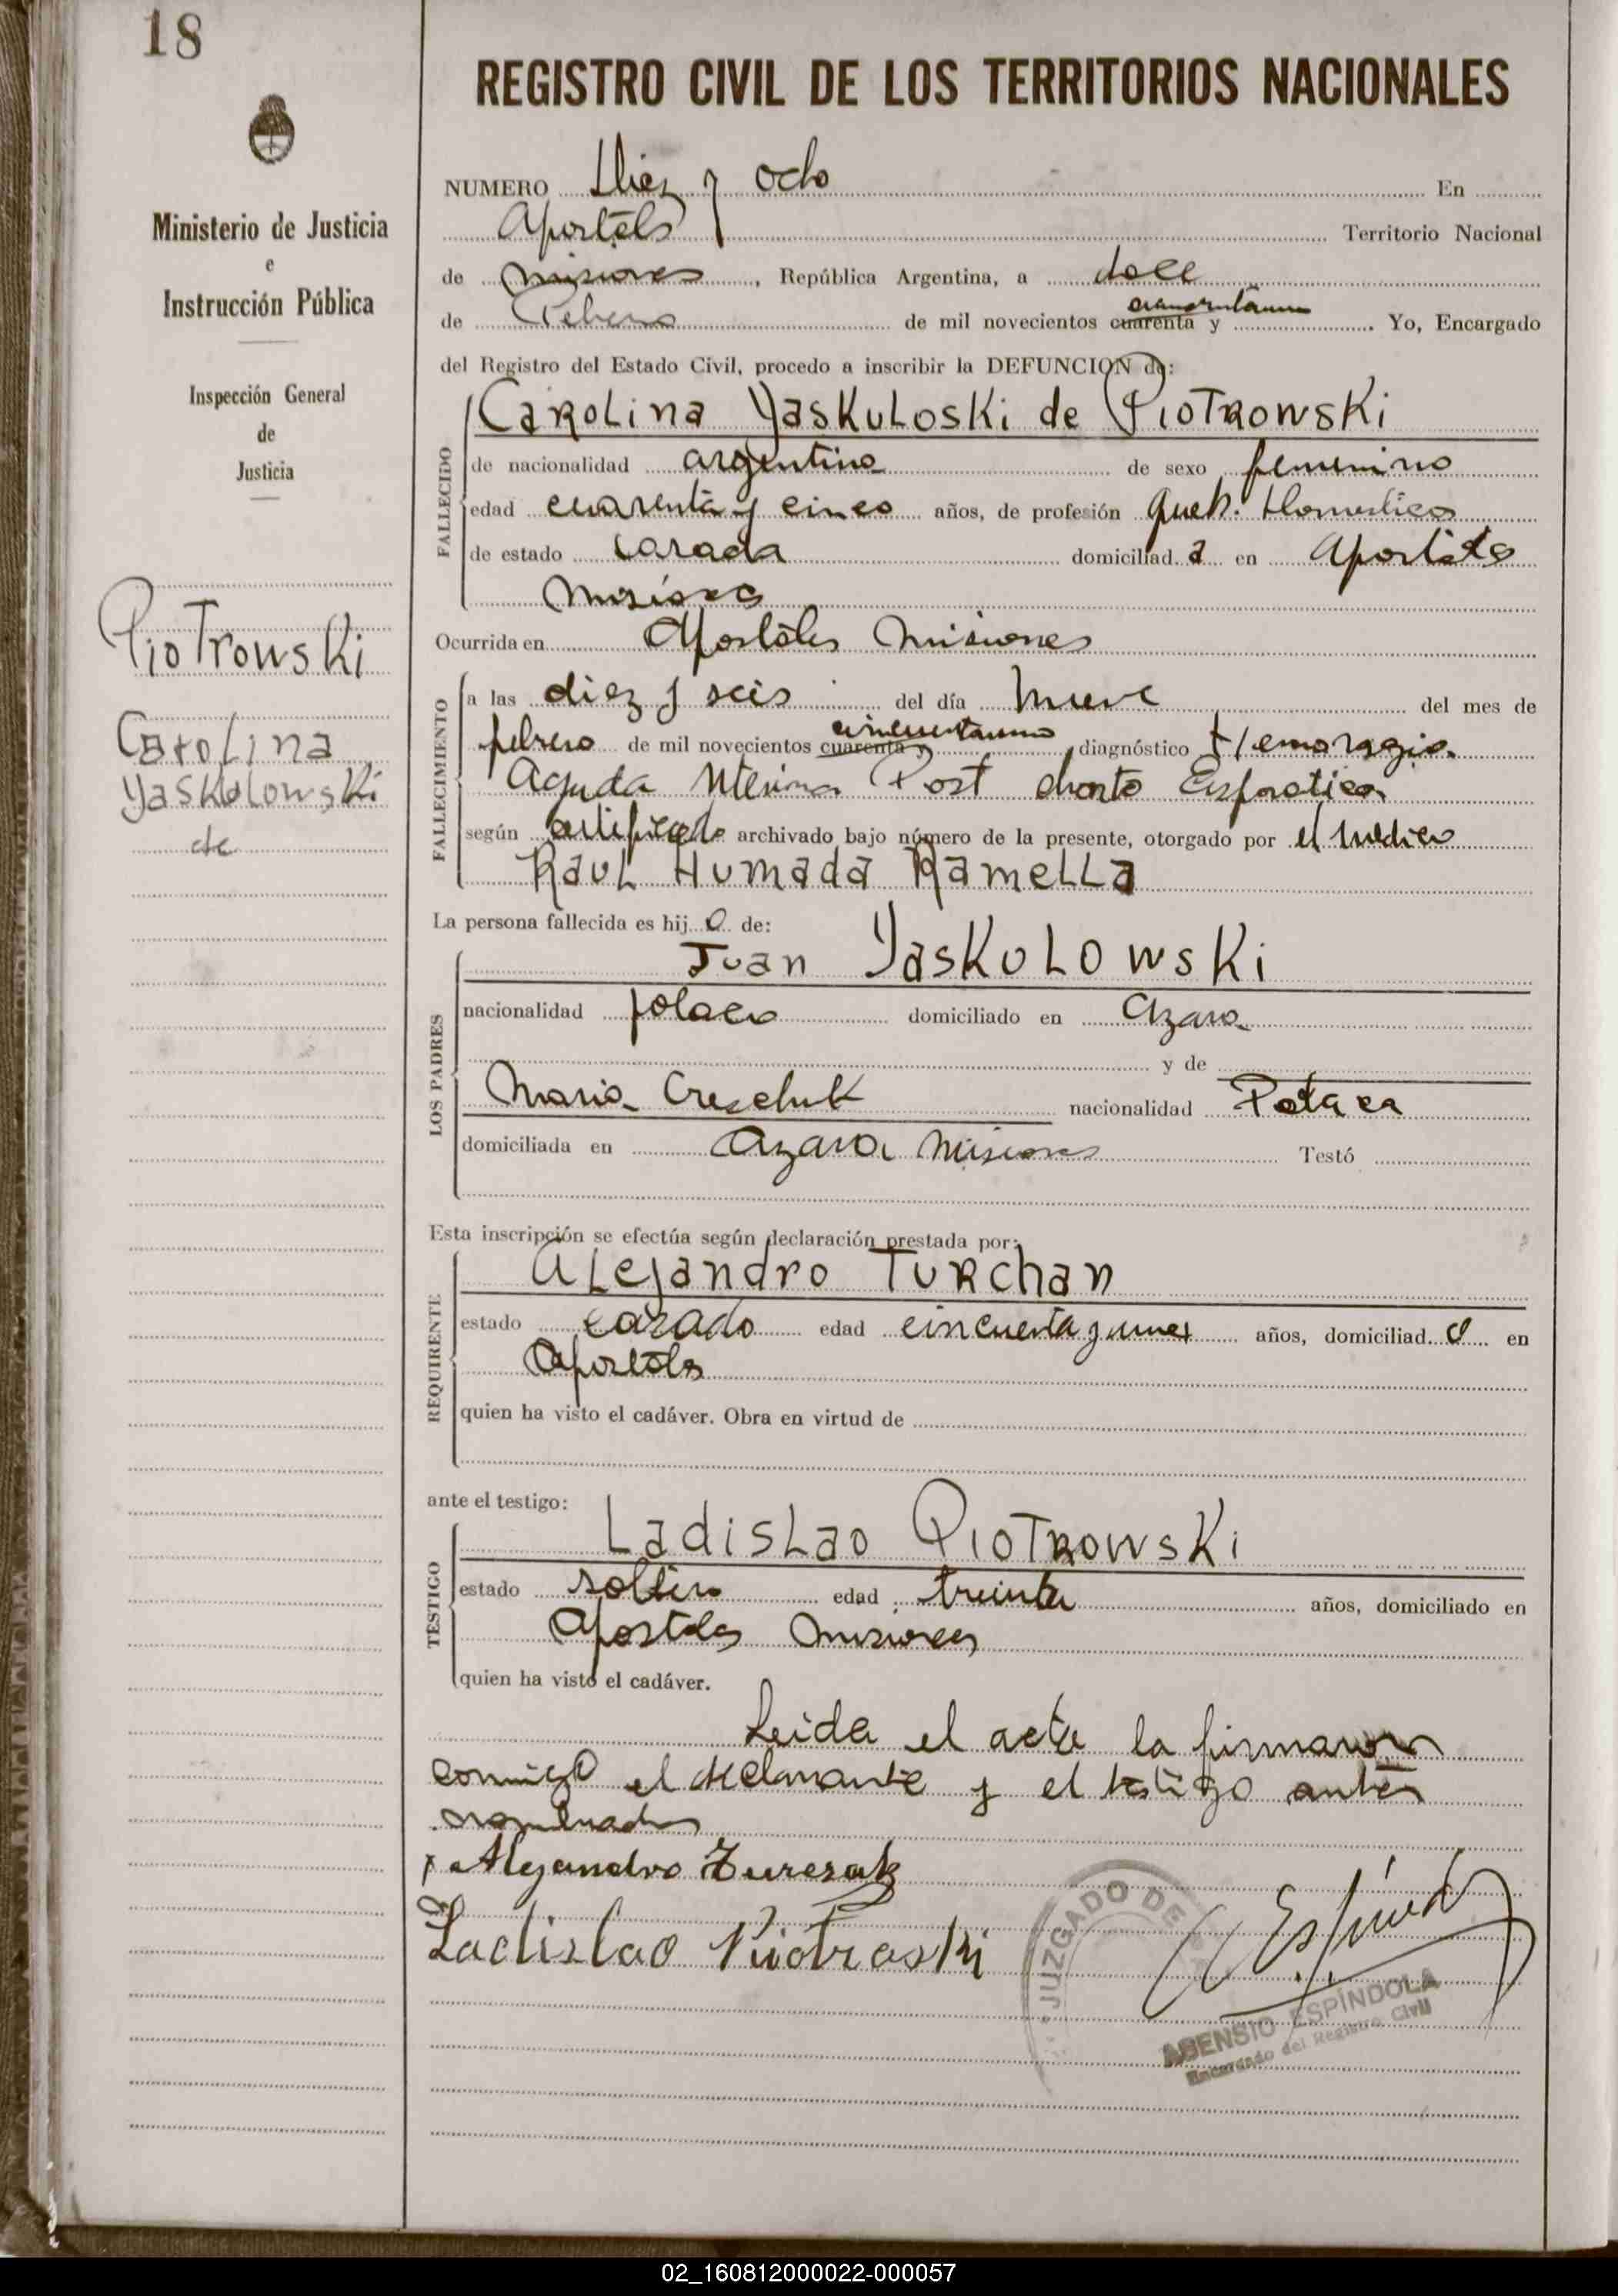 18
Ministerio de Justicia
e
Instrucción Pública
Inspección General
de
Justicia
Piotrowski
Carolina
Yaskulowski
de
REGISTRO CIVIL DE LOS TERRITORIOS NACIONALES
NUMERO Diez y ocho En
Apostoles Territorio Nacional
de Misiones, República Argentina, a doce
cincuentauno
de Febrero de mil novecientos cuarenta y Yo, Encargado
del Registro del Estado Civil, procedo a inscribir la DEFUNCION de:
Carolina Yaskuloski de Piotrowski
FALLECIDO
de nacionalidad argentina de sexo femenino
edad cuarenta y cinco años, de profesión queh. Domestico
de estado casada domiciliad a en Apostoles
Misiones
Ocurrida en Apostoles Misiones
FALLECIMIENTO
a las diez y seis del día nueve del mes de
cincuentauno
febrero de mil novecientos cuarenta y diagnóstico Hemorragia
Aguda Uterina Post
según certificado archivado bajo número de la presente, otorgado por el medico
Raul Humada Ramella
La persona fallecida es hij a de:
LOS PADRES
Juan Yaskulowski
nacionalidad polaco domiciliado en Azara
y de
Maria nacionalidad Polaca
domiciliada en Azara Misiones Testó
Esta inscripción se efectúa según declaración prestada por:
REQUIRENTE
Alejandro Turchan
estado casado edad cincuenta y años, domiciliad o en
Apostoles
quien ha visto el cadáver. Obra en virtud de
ante el testigo:
TESTIGO
Ladislao Piotrowski
estado soltero edad treinta años, domiciliado en
Apostoles Misiones
quien ha visto el cadáver.
Leida el acta la firmaron
conmigo el declarante y el testigo antes
nombrados
x Alejandro Turczak
Ladislao Piotroski
JUZGADO DE
ASENSIO ESPÍNDOLA
Encargado del Registro Civil
02_160812000022-000057